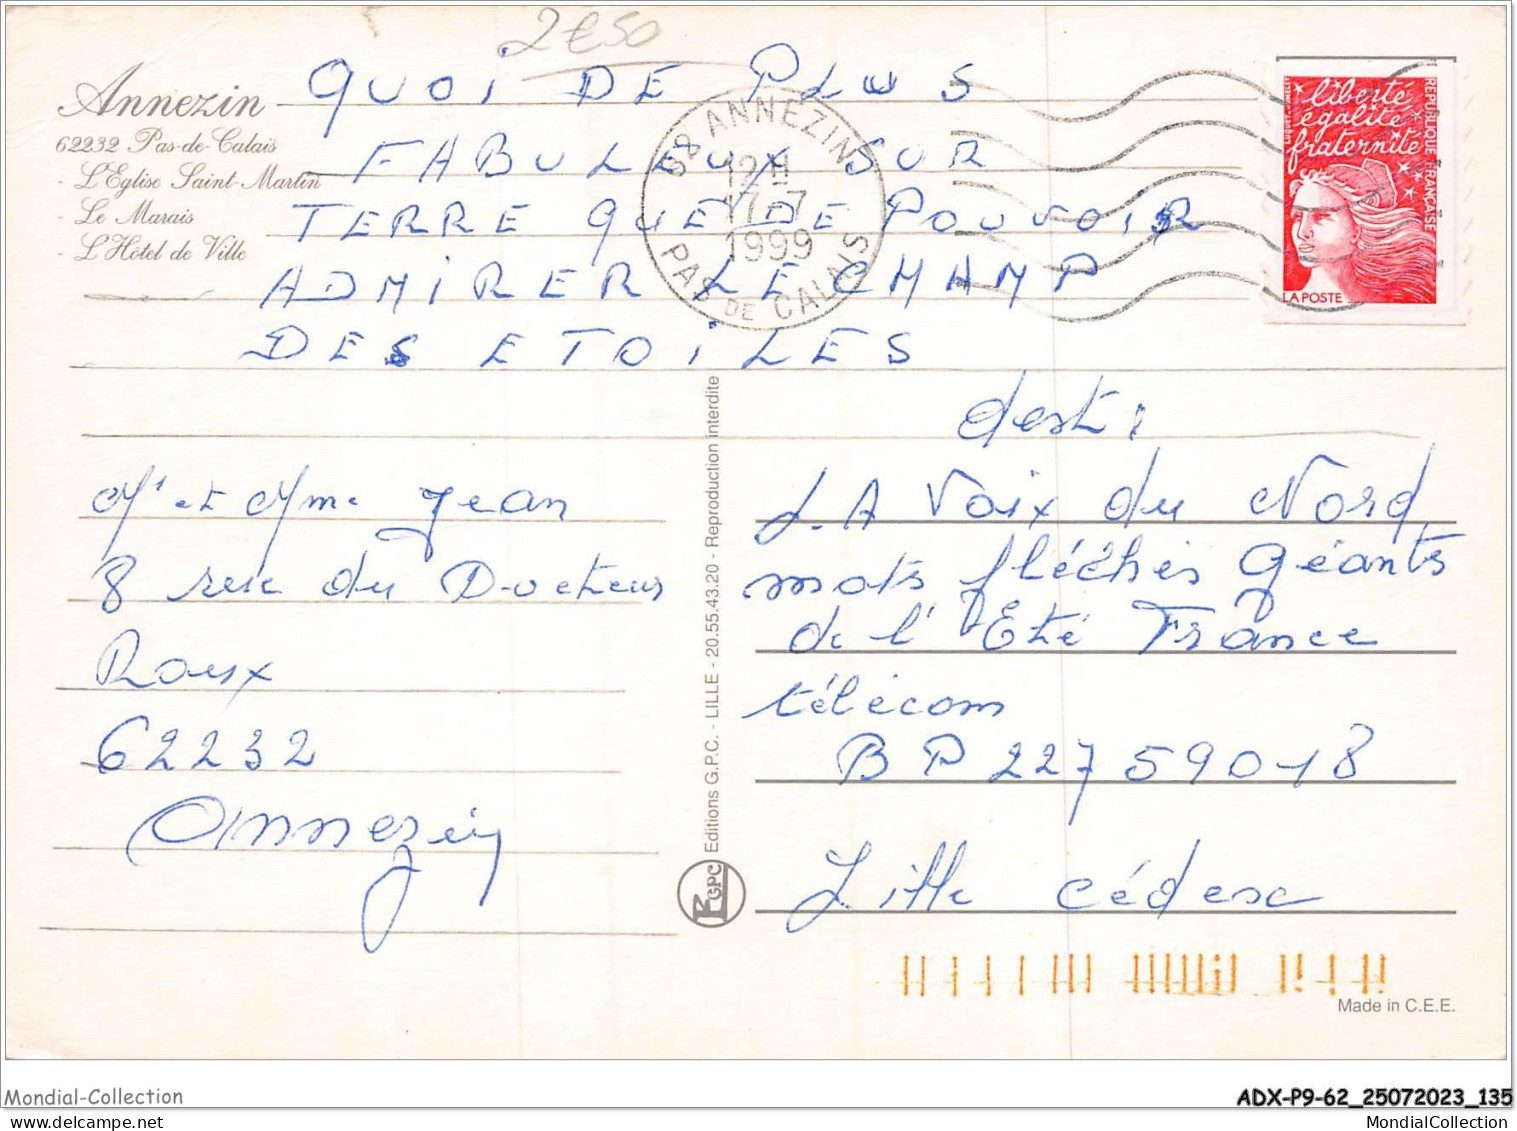 2€50
Annezin
62232 Pas-de-Calais
- L'Eglise Saint-Martin
- Le Marais
- L'Hôtel de Ville
QUOI DE PLUS
FABULEUX SUR
TERRE QUE DE POUVOIR
ADMIRER LE CHAMP
DES ETOILES
62 ANNEZIN
12H
17-7
1999
PAS DE CALAIS
liberté
égalité
fraternité
REPUBLIQUE FRANÇAISE
LA POSTE
Mr et Mme Jean
8 rue du Docteur
Roux
62232
Annezin
Editions G.P.C. - LILLE - 20.55.43.20 - Reproduction interdite
GPC
dest :
LA Voix du Nord
mots fléchés Géants
de l'Eté France
télécom
BP 227 59018
Lille cédex
Made in C.E.E.
Mondial-Collection
ADX-P9-62_25072023_135
MondialCollection